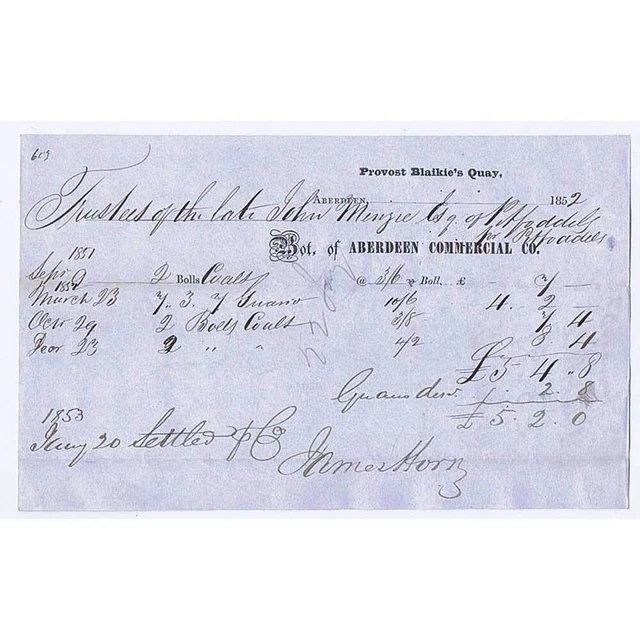 609
Provost Blaikie's Quay,
ABERDEEN, 1852
Trustees of the late John Menzie Esq of Pitfoddels
for Pitfoddels
Bot. of ABERDEEN COMMERCIAL CO.
1851
Sepr 9 2 Bolls Coals @ 3/6 ⅌ Boll, £ 7/-
1852
March 23 7.. 3. 7 Guano 10/6 4. 2 -
Octr 29 2 Bolls Coals 3/8 7 4
Decr 23 2 ,, ,, 4/2 8 4
£5 4 .. 8
Guano 2. 8
£5. 2. 0
1853
Jany 20 Settled
James Horn